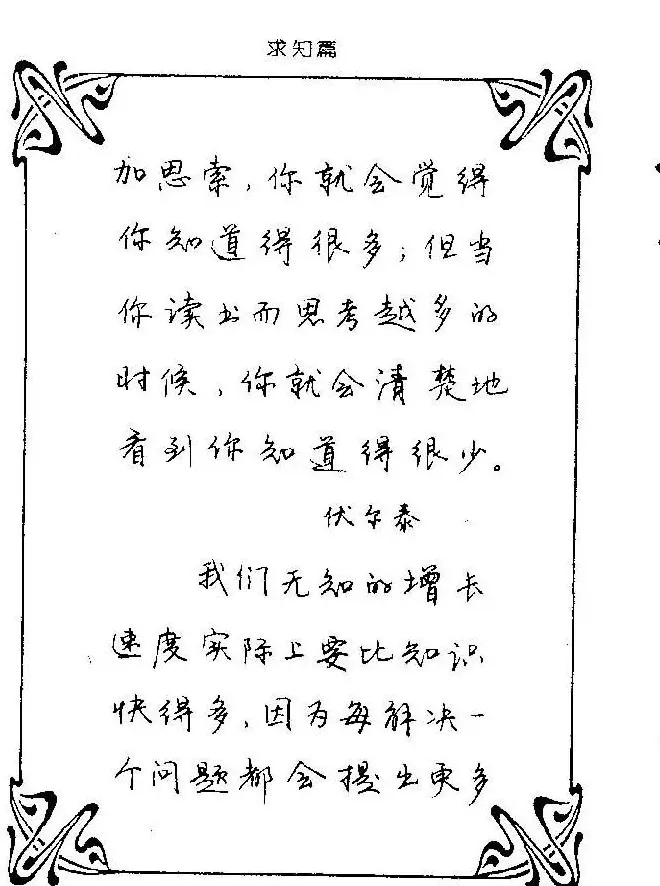 求知篇
加思索，你就会觉得
你知道得很多；但当
你读书而思考越多的
时候，你就会清楚地
看到你知道得很少。
伏尔泰
我们无知的增长
速度实际上要比知识
快得多，因为每解决一
个问题都会提出更多